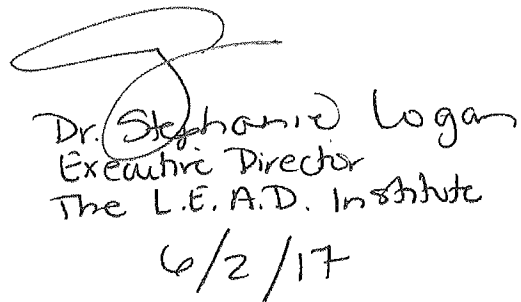 Dr. Stephanie Logan
Executive Director
The L.E.A.D. Institute
6/2/17